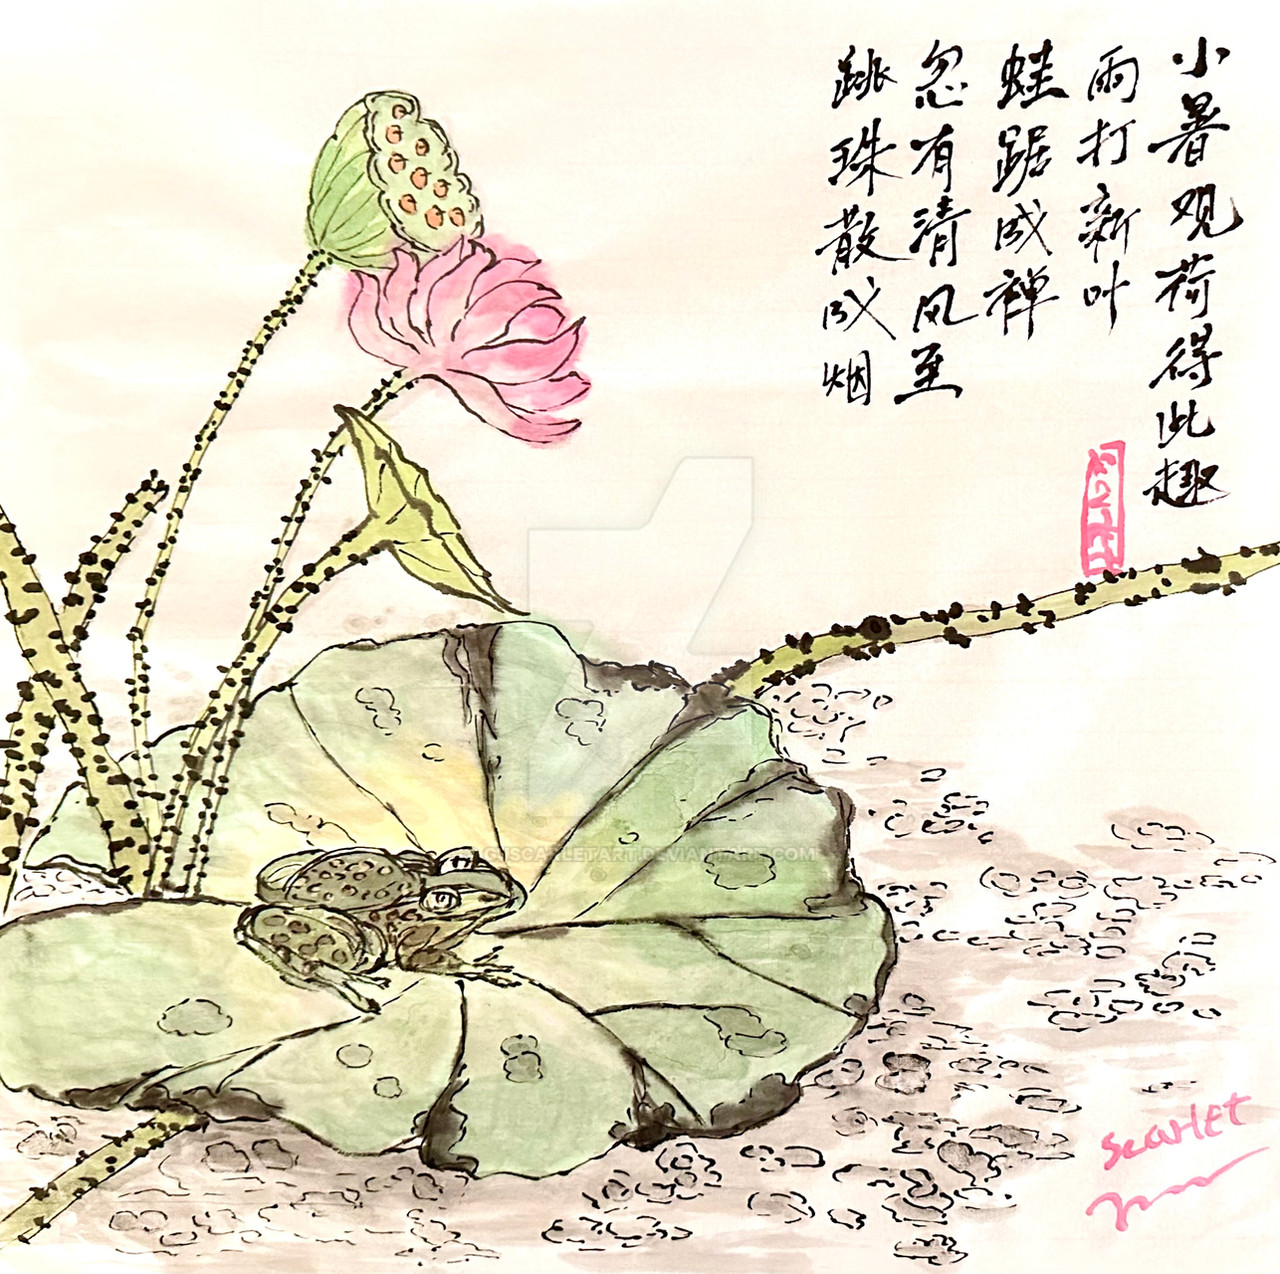 小暑观荷得此趣
雨打新叶
蛙踞成禅
忽有清风至
跳珠散成烟
SCARLET
Scarlet